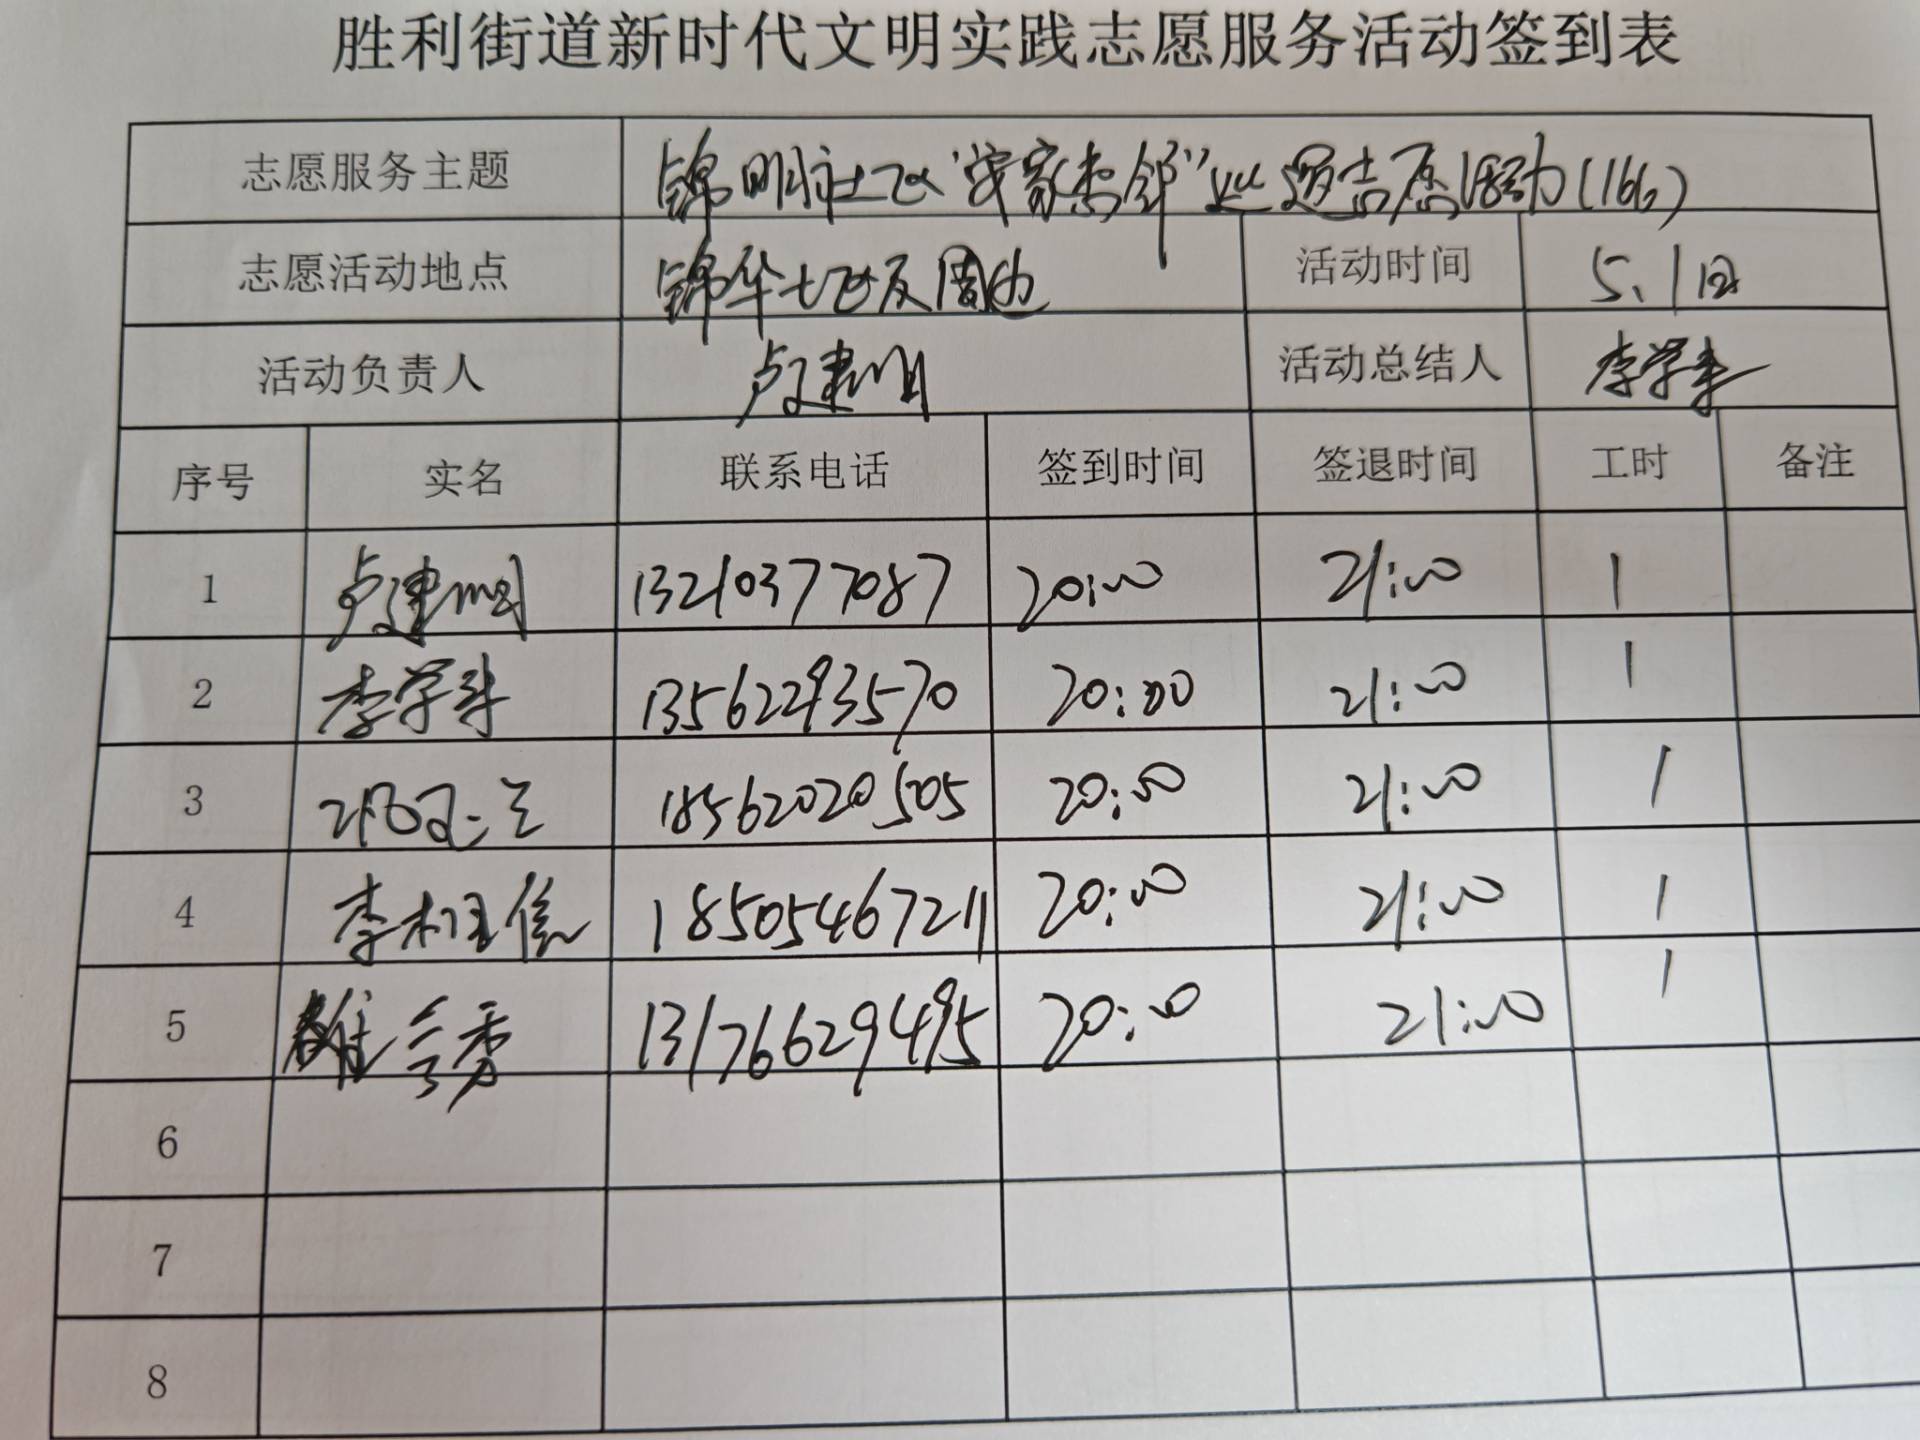 胜利街道新时代文明实践志愿服务活动签到表
志愿服务主题 锦明社区"安家杰邻"巡逻志愿活动(166)
志愿活动地点 锦华七区及周边 活动时间 5.1日
活动负责人 卢建明 活动总结人 李学
序号 实名 联系电话 签到时间 签退时间 工时 备注
1 卢建明 13210377087 20:00 21:00 1
2 李学 13562293570 20:00 21:00 1
3 18562020505 20:00 21:00 1
4 李相信 18505467211 20:00 21:00 1
5 秀 13176629495 20:00 21:00 1
6
7
8